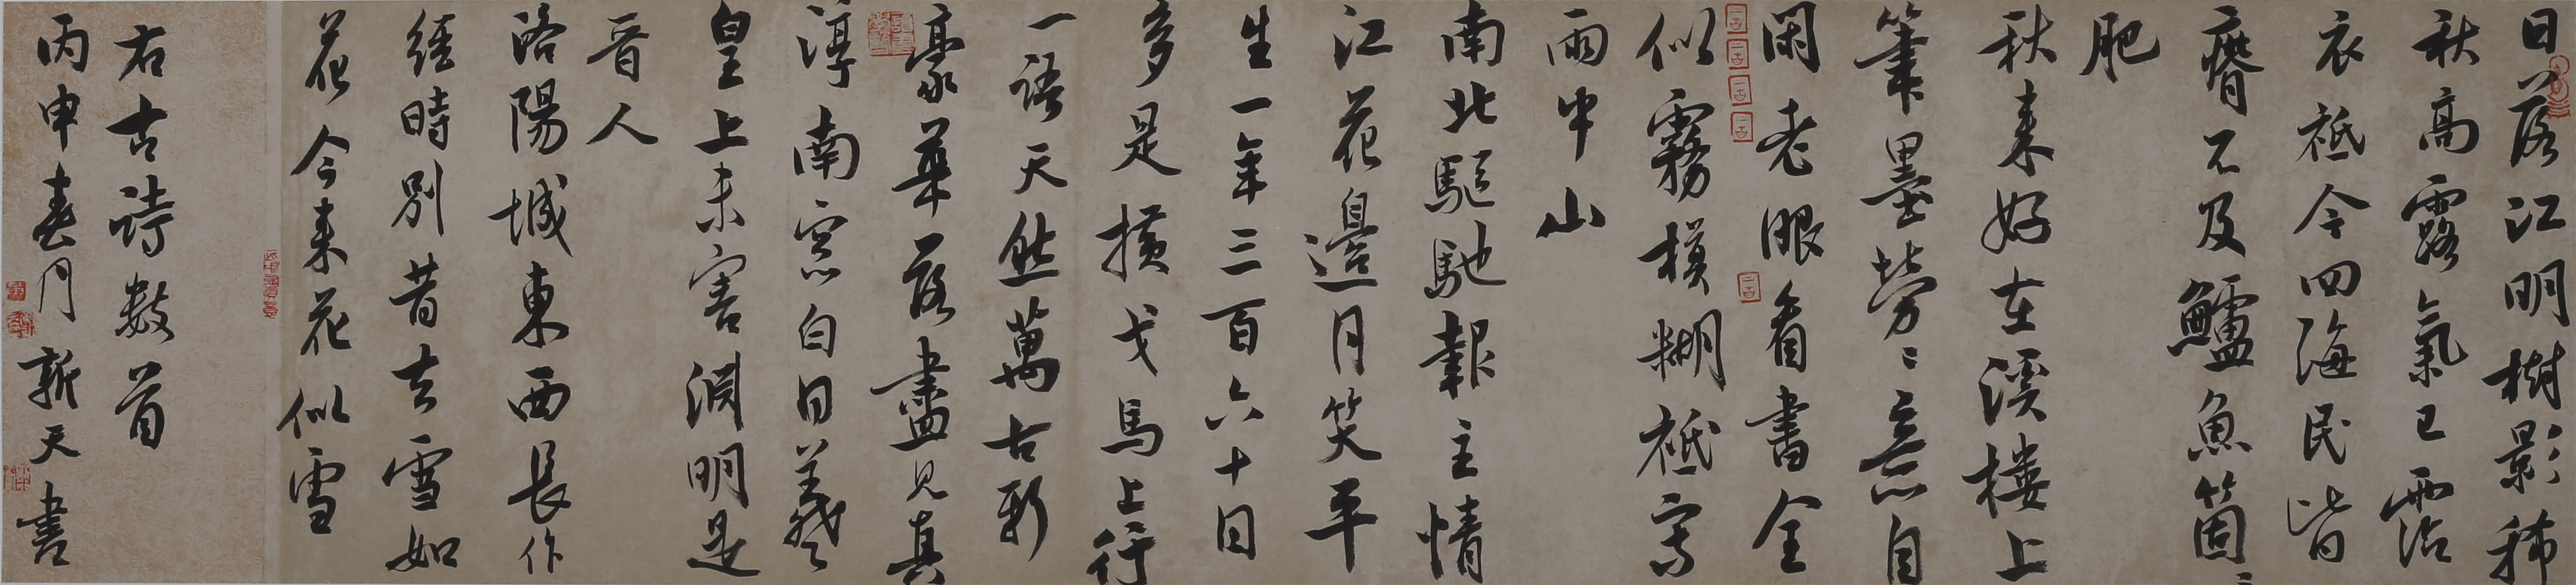 日落江明樹影稀
秋高露氣已霑
衣祗今四海民皆
瘠不及鱸魚箇〻
肥
秋来好在溪樓上
筆墨勞〻意自
閑老眼看書全
似霧模糊祗寫
雨中山
南北驅馳報主情
江花邊月笑平
生一年三百六十日
多是橫戈馬上行
一語天然萬古新
豪華落盡見真
淳南窓白日羲
皇上未害淵明是
晋人
洛陽城東西長作
經時別昔去雪如
花今来花似雪
右古詩數首
丙申春月新天書